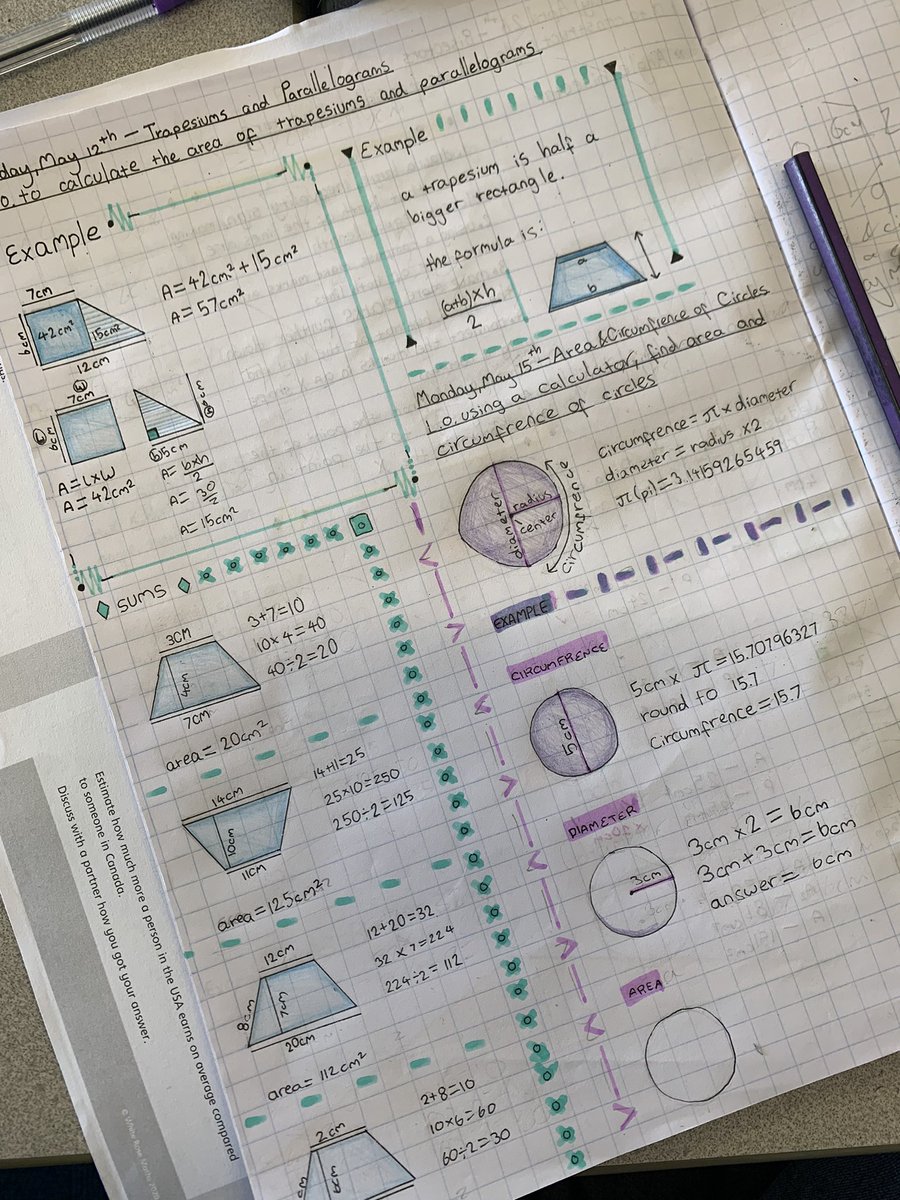 day, May 12th - Trapesiums and Parallelograms
o. to calculate the area of trapesiums and parallelograms.
Example
7cm
6cm
42cm²
15cm²
12cm
A=42cm²+15cm²
A=57cm²
7cm
6cm
A=LxW
A=42cm²
5cm
A=bxh
2
A=30
2
A=15cm²
SUMS
3cm
4cm
7cm
3+7=10
10×4=40
40÷2=20
area=20cm²
14cm
10cm
11cm
14+11=25
25×10=250
250÷2=125
area=125cm²
12cm
8cm
7cm
20cm
12+20=32
32×7=224
224÷2=112
area=112cm²
2cm
6cm
2+8=10
10×6=60
60÷2=30
Example
a trapesium is half a
bigger rectangle.
the formula is:
(a+b)×h
2
a
b
Monday, May 15th - Area & Circumfrence of Circles
L.O. using a calculator, find area and
circumfrence of circles
diameter
radius
center
circumfrence
circumfrence=π×diameter
diameter=radius×2
π(pi)=3.14159265459
EXAMPLE
CIRCUMFRENCE
5cm
5cm× π=15.70796327
round to 15.7
Circumfrence=15.7
DIAMETER
3cm
3cm×2=6cm
3cm+3cm=6cm
answer= 6cm
AREA
Estimate how much more a person in the USA earns on average compared
to someone in Canada.
Discuss with a partner how you got your answer.